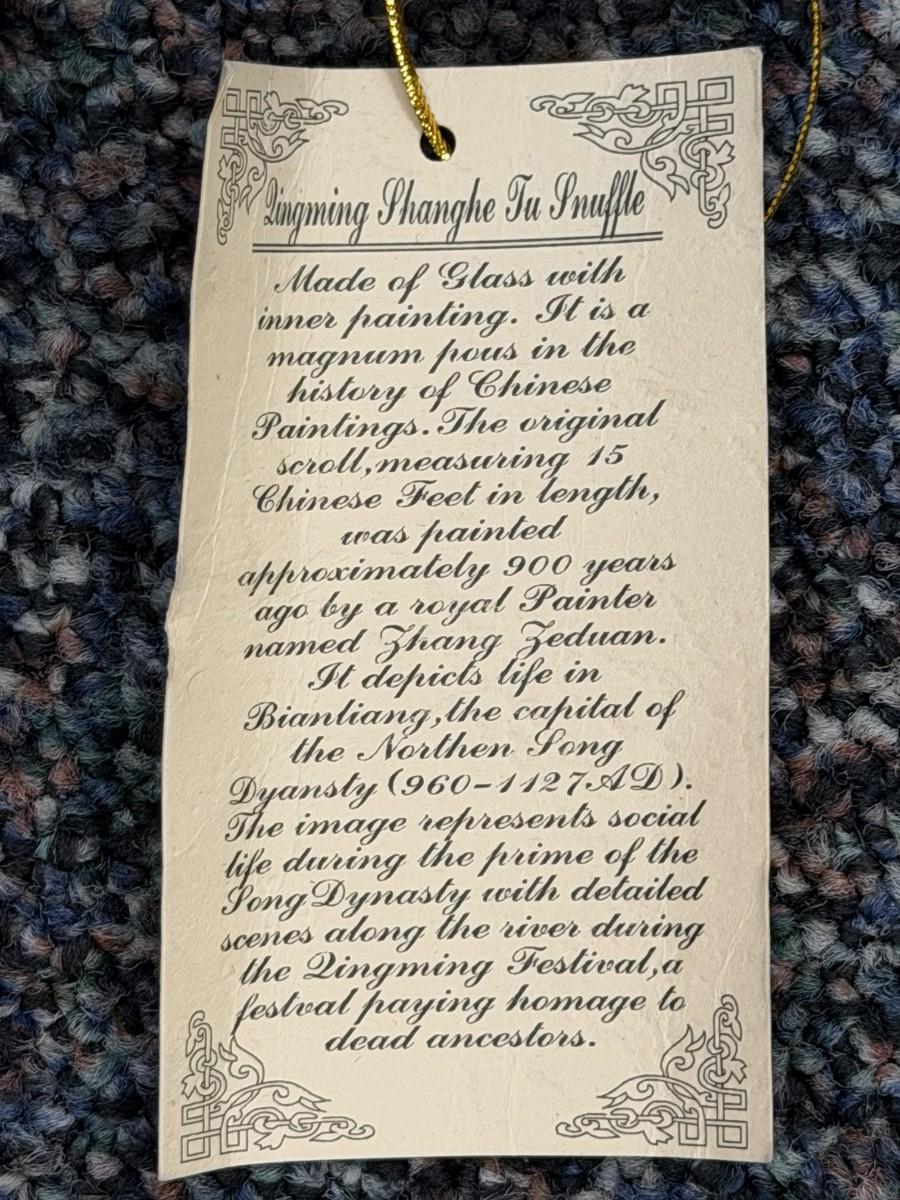 Qingming Shanghe Tu Snuffle
Made of Glass with
inner painting. It is a
magnum pous in the
history of Chinese
Paintings.The original
scroll,measuring 15
Chinese Feet in length,
was painted
approximately 900 years
ago by a royal Painter
named Zhang Zeduan.
It depicts life in
Bianliang,the capital of
the Northen Song
Dyansty (960-1127AD).
The image represents social
life during the prime of the
Song Dynasty with detailed
scenes along the river during
the Qingming Festival,a
festval paying homage to
dead ancestors.